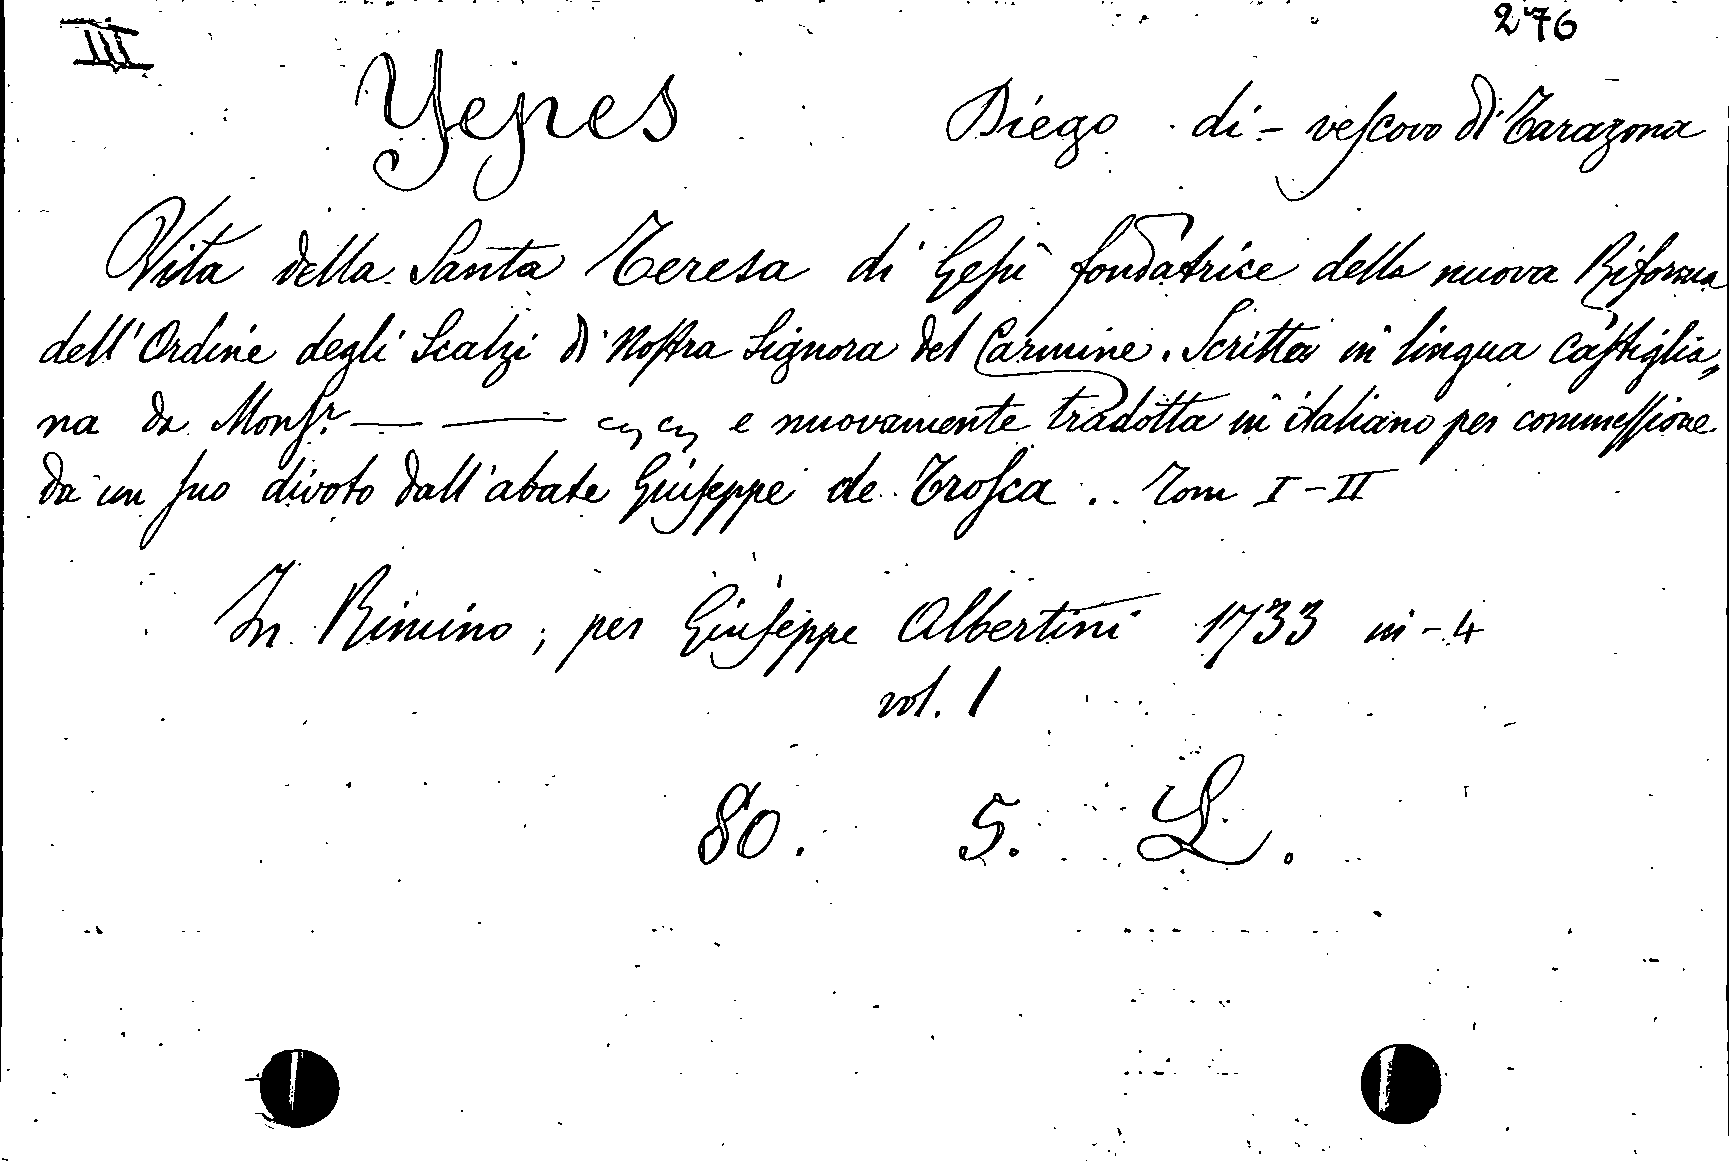 III 276
Yepes Diego di - vescovo di Tarazona
Vita della Santa Teresa di Gesù fondatrice della nuova Riforma
dell'Ordine degli Scalzi di Nostra Signora del Carmine. Scritta in lingua castiglia„
na da Monsr. — — e nuovamente tradotta in italiano per commessione
da un suo divoto dall'abate Giuseppe de Trosca .. Tom I-II
In Rimino, per Giuseppe Albertini 1733 in-4
vol. 1
80. 5. L.